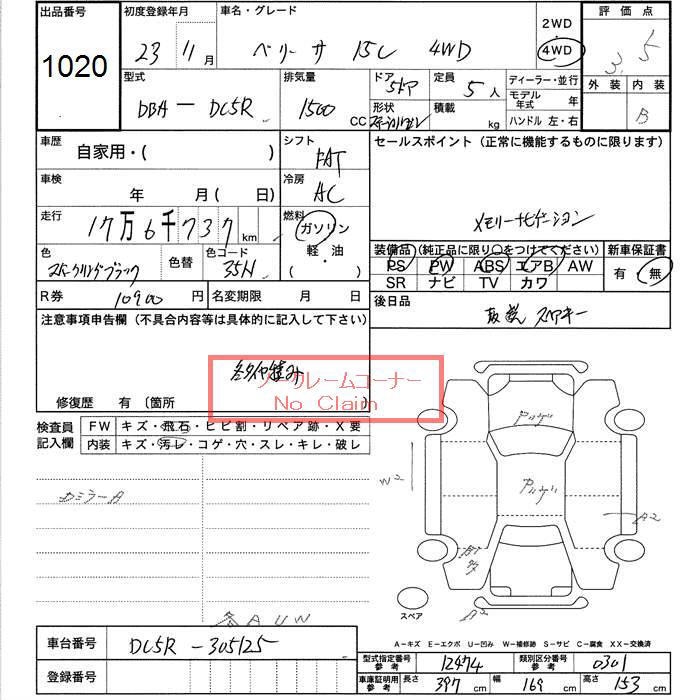 出品番号 初度登録年月 車名・グレード 2WD 評価点
1020 23 11月 ベリーサ 15C 4WD 4WD 3.5
型式 排気量 ドア 定員 ディーラー・並行 外装 内装
DBA - DC5R 1500 CC 5ドア 5人 モデル年式 年 B
形状 積載 kg ハンドル 左・右
車歴 自家用・( ) シフト FAT セールスポイント(正常に機能するものに限ります)
車検 年 月( 日) 冷房 AC
メモリーナビゲーション
走行 17万6千737km 燃料 ガソリン
軽・油
( )
装備品(純正品に限り○をつけてください) 新車保証書
色 スパークリングブラック 色替 色コード 35N
PS PW ABS エアB AW 有・無
SR ナビ TV カワ
R券 10900円 名変期限 月 日 後日品
取説 スペアキー
注意事項申告欄(不具合内容等は具体的に記入して下さい)
ノークレームコーナー
No Claim
修復歴 有 〔箇所
検査員記入欄 FW キズ・飛石・ヒビ割・リペア跡・X要
内装 キズ・汚レ・コゲ・穴・スレ・キレ・破レ
W2
A2
カミラーA
スペア
AUW
A-キズ E-エクボ U-凹み W-補修跡 S-サビ C-腐食 XX-交換済
車台番号 DC5R-305125
型式指定番号参考 12474 類別区分番号参考 0301
登録番号
車庫証明用参考 長さ 397cm 幅 169cm 高さ 153cm